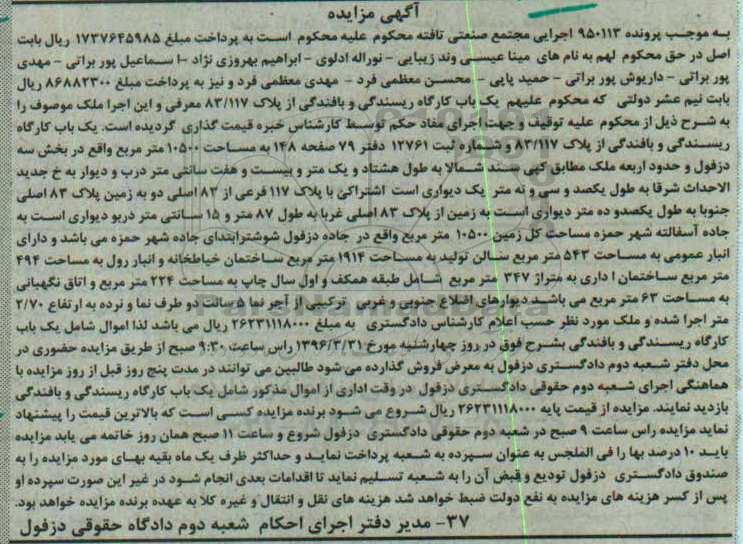 آگهی مزایده
به موجب پرونده ۹۵۰۱۱۳ اجرایی مجتمع صنعتی تافته محکوم علیه محکوم است به پرداخت مبلغ ۱۷۳۷۶۴۵۹۸۵ ریال بابت
اصل در حق محکوم لهم به نام های مینا عیسی وند زیبایی - نوراله ادلوی - ابراهیم بهروزی نژاد - اسماعیل پور براتی - مهدی
پور براتی - داریوش پور براتی - حمید پاپی - محسن معظمی فرد - مهدی معظمی فرد و نیز به پرداخت مبلغ ۸۶۸۸۲۳۰۰ ریال
بابت نیم عشر دولتی که محکوم علیهم یک باب کارگاه ریسندگی و بافندگی از پلاک ۸۳/۱۱۷ معرفی و این اجرا ملک موصوف را
به شرح ذیل از محکوم علیه توقیف و جهت اجرای مفاد حکم توسط کارشناس خبره قیمت گذاری گردیده است. یک باب کارگاه
ریسندگی و بافندگی از پلاک ۸۳/۱۱۷ و شماره ثبت ۱۲۷۶۱ دفتر ۷۹ صفحه ۱۴۸ به مساحت ۱۰۵۰۰ متر مربع واقع در بخش سه
دزفول و حدود اربعه ملک مطابق کپی سند شمالا به طول هشتاد و یک متر و بیست و هفت سانتی متر درب و دیوار به خ جدید
الاحداث شرقا به طول یکصد و سی و نه متر یک دیواری است اشتراکی با پلاک ۱۱۷ فرعی از ۸۳ اصلی دو به زمین پلاک ۸۳ اصلی
جنوبا به طول یکصدو ده متر دیواری است به زمین از پلاک ۸۳ اصلی غربا به طول ۸۷ متر و ۱۵ سانتی متر دریو دیواری است به
جاده آسفالته شهر حمزه مساحت کل زمین ۱۰۵۰۰ متر مربع واقع در جاده دزفول شوشترابتدای جاده شهر حمزه می باشد و دارای
انبار عمومی به مساحت ۵۴۳ متر مربع سالن تولید به مساحت ۱۹۱۴ متر مربع ساختمان خیاطخانه و انبار رول به مساحت ۴۹۴
متر مربع ساختمان ا داری به متراژ ۳۴۷ متر مربع شامل طبقه همکف و اول سال چاپ به مساحت ۲۲۴ متر مربع و اتاق نگهبانی
به مساحت ۶۳ متر مربع می باشد دیوارهای اضلاع جنوبی و غربی ترکیبی از آجر نما ۵ سانت دو طرف نما و نرده به ارتفاع ۲/۷۰
متر اجرا شده و ملک مورد نظر حسب اعلام کارشناس دادگستری به مبلغ ۲۶۲۳۱۱۱۸۰۰۰ ریال می باشد لذا اموال شامل یک باب
کارگاه ریسندگی و بافندگی بشرح فوق در روز چهارشنبه مورخ ۱۳۹۶/۳/۳۱ راس ساعت ۹:۳۰ صبح از طریق مزایده حضوری در
محل دفتر شعبه دوم دادگستری دزفول به معرض فروش گذارده می شود طالبین می توانند در مدت پنج روز قبل از روز مزایده با
هماهنگی اجرای شعبه دوم حقوقی دادگستری دزفول در وقت اداری از اموال مذکور شامل یک باب کارگاه ریسندگی و بافندگی
بازدید نمایند. مزایده از قیمت پایه ۲۶۲۳۱۱۱۸۰۰۰ ریال شروع می شود برنده مزایده کسی است که بالاترین قیمت را پیشنهاد
نماید مزایده راس ساعت ۹ صبح در شعبه دوم حقوقی دادگستری دزفول شروع و ساعت ۱۱ صبح همان روز خاتمه می یابد مزایده
باید ۱۰ درصد بها را فی المجلس به عنوان سپرده به شعبه پرداخت نماید و حداکثر ظرف یک ماه بقیه بهای مورد مزایده را به
صندوق دادگستری دزفول تودیع و قبض آن را به شعبه تسلیم نماید تا اقدامات بعدی انجام شود در غیر این صورت سپرده او
پس از کسر هزینه های مزایده به نفع دولت ضبط خواهد شد هزینه های نقل و انتقال و غیره کلا به عهده برنده مزایده خواهد بود.
۳۷- مدیر دفتر اجرای احکام شعبه دوم دادگاه حقوقی دزفول